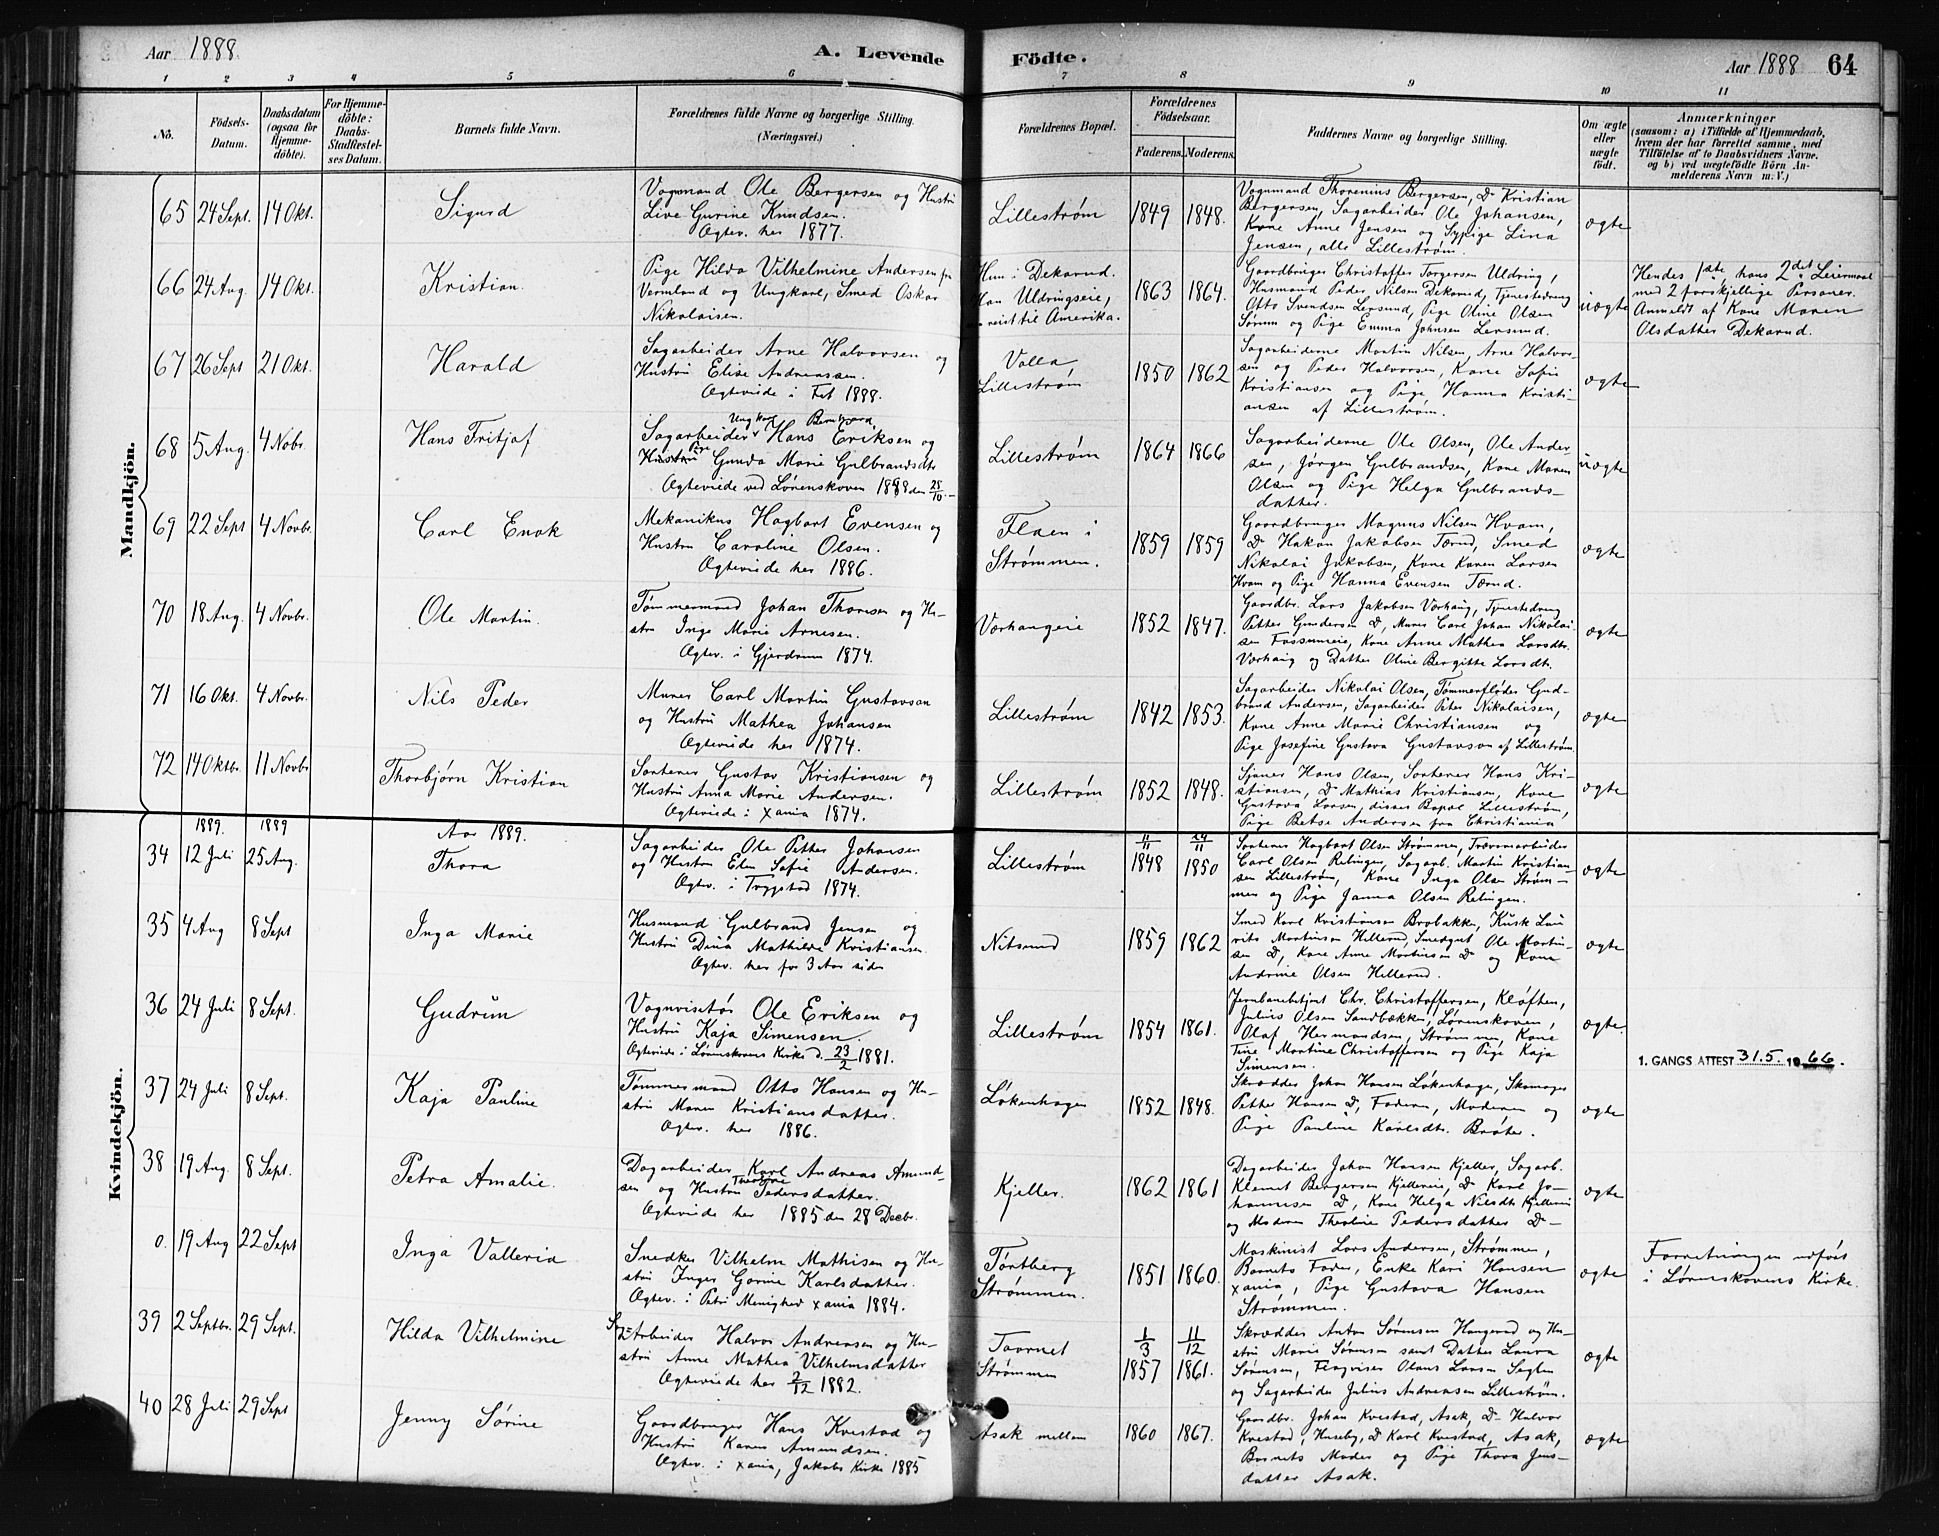 Aar 1888. A. Levende Födte. Aar 1888 64
1 2 3 4 5 6 7 8 9 10 11
No. Födsels-Datum. Daabsdatum (ogsaa for Hjemme-döbte). For Hjemme-döbte: Daabs-Stadfæstel-ses Datum. Barnets fulde Navn. Forældrenes fulde Navne og borgerlige Stilling. (Næringsvei.) Forældrenes Bopæl. Forældrenes Födselsaar. Faderens. Moderens. Faddernes Navne og borgerlige Stilling. Om ægte eller uægte födt. Anmærkninger (saasom: a) i Tilfælde af Hjemmedaab, hvem der har forrettet samme, med Tilföielse af to Daabsvidners Navne, og b) ved uægtefödte Börn An-melderens Navn m. V.)
Mandkjön.
65 24 Sept. 14 Okt. Sigurd
Vognmand Ole Bergersen og Hustru
Live Gurine Knudsen.
Ægtev. her 1877.
Lillestrøm 1849 1848.
Vognmand Thorenius Bergersen, Do Kristian
Bergersen, Sagarbeider Ole Johansen,
Kone Anne Jensen og Sypige Lina
Jensen, alle Lillestrøm.
ægte
66 24 Aug. 14 Okt. Kristian.
Pige Hilda Vilhelmine Andersen fra
Vermland og Ungkarl, Smed Oskar
Nikolaisen.
Hun i Dekarud.
Han Uldringseie,
reist til Amerika.
1863 1864.
Gaardbruger Christoffer Torgersen Uldring,
Husmand Peder Nilsen Dekarud, Tjenestedreng
Otto Svendsen Lersund, Pige Oline Olsen
Sørum og Pige Emma Johnsen Lersund.
uægte
Hendes 1ste, hans 2det Leiermaal
med 2 forskjellige Personer.
Anmeldt af Kone Maren
Olsdatter Dekarud.
67 26 Sept 21 Okt. Harald
Sagarbeider Arne Halvorsen og
Hustru Elise Andreassen.
Ægteviede i Fet 1888.
Volla
Lillestrøm
1850 1862
Sagarbeiderne Martin Nilsen, Arne Halvor-
sen og Peder Halvorsen, Kone Sofie
Kristiansen og Pige Hanna Kristi-
ansen af Lillestrøm.
ægte
68 5 Aug. 4 Nobr. Hans Fritjof
Ungkarl Bernhard
Sagarbeider Hans Eriksen og
Hustru Pige Gunda Marie Gulbrandsdtr
Ægteviede ved Lørenskoven 1888 den 28/10.
Lillestrøm 1864 1866
Sagarbeiderne Ole Olsen, Ole Ander-
sen, Jørgen Gulbrandsen, Kone Maren
Olsen og Pige Helga Gulbrands-
datter.
uægte
69 22 Sept 4 Novbr. Carl Enok
Mekanikus Hagbart Evensen og
Hustru Caroline Olsen.
Ægteviede her 1886.
Flaen i
Strømmen.
1859 1859
Gaardbruger Magnus Nilsen Hvam,
Do Hakon Jakobsen Tærud, Smed
Nikolai Jakobsen, Kone Karen Larsen
Hvam og Pige Hanna Evensen Tærud.
ægte
70 18 Aug. 4 Novbr. Ole Martin.
Tømmermand Johan Thoresen og Hu-
stru Inge Marie Arnesen.
Ægtev. i Gjerdrum 1874.
Varhaugeie 1852 1847.
Gaardbr. Lars Jakobsen Varhaug, Tjenestedreng
Petter Gundersen Do, Murer Carl Johan Nikolai-
sen Fossumeie, Kone Anne Mathea Larsdt.
Varhaug og Datter Oline Bergitte Larsdt.
ægte
71 16 Okt. 4 Novbr. Nils Peder
Murer Carl Martin Gustavson
og Hustru Mathea Johansen
Ægteviede her 1874.
Lillestrøm 1842 1853.
Sagarbeider Nikolai Olsen, Tømmerfløder Gud-
brand Andersen, Sagarbeider Peter Nikolaisen,
Kone Anne Marie Christiansen og
Pige Josefine Gustava Gustavson af Lillestrøm
ægte
72 14 Oktbr. 11 Novbr Thorbjørn Kristian
Sorterer Gustav Kristiansen og
Hustru Anna Marie Andersen.
Ægteviede i Xania 1874.
Lillestrøm 1852 1848.
Sjauer Hans Olsen, Sorterer Hans Kri-
stiansen, Do Mathias Kristiansen, Kone
Gustava Larsen, disses Bopæl Lillestrøm,
Pige Betse Andersen fra Christiania
ægte
Kvindekjön.
1889. 1889 Aar 1889.
34 12 Juli 25 Aug. Thora
Sagarbeider Ole Petter Johansen
og Hustru Elen Sofie Andersen.
Ægtev. i Trygstad 1874.
Lillestrøm 11/11 1848 24/11 1850
Sorterer Hagbart Olsen Strømmen, Trævarearbeider
Carl Olsen Relingen, Sagarb. Martin Kristian-
sen Lillestrøm, Kone Inga Olsen Strøm-
men og Pige Janna Olsen Relingen.
ægte
35 4 Aug 8 Sept Inga Marie
Husmand Gulbrand Jensen og
Hustru Dina Mathilde Kristiansen.
Ægtev. her for 3 Aar siden
Nitsund 1859 1862
Smed Karl Kristiansen Brobakke, Kusk Lau-
rits Martinsen Hillerud, Smedgut Ole Martin-
sen Do, Kone Anne Martinsen Do og Kone
Andrine Olsen Hillerud.
ægte
36 24 Juli 8 Sept. Gudrun
Vognvisitør Ole Eriksen og
Hustru Kaja Simensen.
Ægteviede i Lørenskovens Kirke d. 23/2 1881.
Lillestrøm 1854 1861.
Jernbanebetjent Chr. Christoffersen, Kløften,
Julius Olsen Sandbækken, Lørenskoven,
Olaf Hermandsen, Strømmen, Kone
Tine Martine Christoffersen og Pige Kaja
Simensen.
ægte
1. GANGS ATTEST 31.5. 1966.
37 24 Juli 8 Sept. Kaja Pauline
Tømmermand Otto Hansen og Hu-
stru Maren Kristiansdatter.
Ægtev. her 1886.
Løkenhagen 1852 1848.
Skrædder Johan Hansen Løkenhagen, Skomager
Petter Hansen Do, Faderen, Moderen og
Pige Pauline Karlsdt. Bråter.
ægte
38 19 Aug. 8 Sept. Petra Amalie.
Dagarbeider Karl Andreas Amund-
sen og Hustru Theoline Pedersdatter.
Ægteviede her 1885 den 28 Decbr.
Kjeller. 1862 1861
Dagarbeider Johan Hansen Kjeller, Sagarb.
Klemet Bergersen Kjellereie, Do Karl Jo-
hannesen Do, Kone Helga Nilsdt Kjellereie
og Moderen Theoline Pedersdatter Do
ægte
0. 19 Aug 22 Sept Inga Valleria
Snedker Vilhelm Mathisen og Hu-
stru Inger Gorine Karlsdatter.
Ægtev. i Petri Menighed Xania 1884.
Tørtberg
Strømmen.
1851 1860.
Maskinist Lars Andersen, Strømmen,
Barnets Fader, Enke Kari Hansen
Xania, Pige Gustava Hansen
Strømmen.
ægte
Forretningen udført
i Lørenskovens Kirke.
39 2 Septbr. 29 Sept. Hilda Vilhelmine
Arbeider Halvor Andreasen og Hu-
stru Anne Mathea Vilhelmsdatter
Ægteviede her 2/12 1882.
Taarnet
Strømmen
1/3 1857 11/12 1861.
Skrædder Anton Sørensen Haugerud og Hu-
stru Marie Sørensen samt Datter Laura
Sørensen, Flagviser Olaus Larsen Seglen
og Sagarbeider Julius Andreasen Lillestrøm.
ægte
40 28 Juli 29 Sept Jenny Sørine
Gaardbruger Hans Kvestad og
Hustru Karen Amundsen.
Ægtev. i Xania, Jakobs Kirke 1885
Asak mellem 1860 1867.
Gaardbr. Johan Kvestad, Asak, Do Halvor
Kvestad, Huseby, Do Karl Kvestad, Asak,
Barnets Moder og Pige Thora Jens-
datter Asak.
ægte